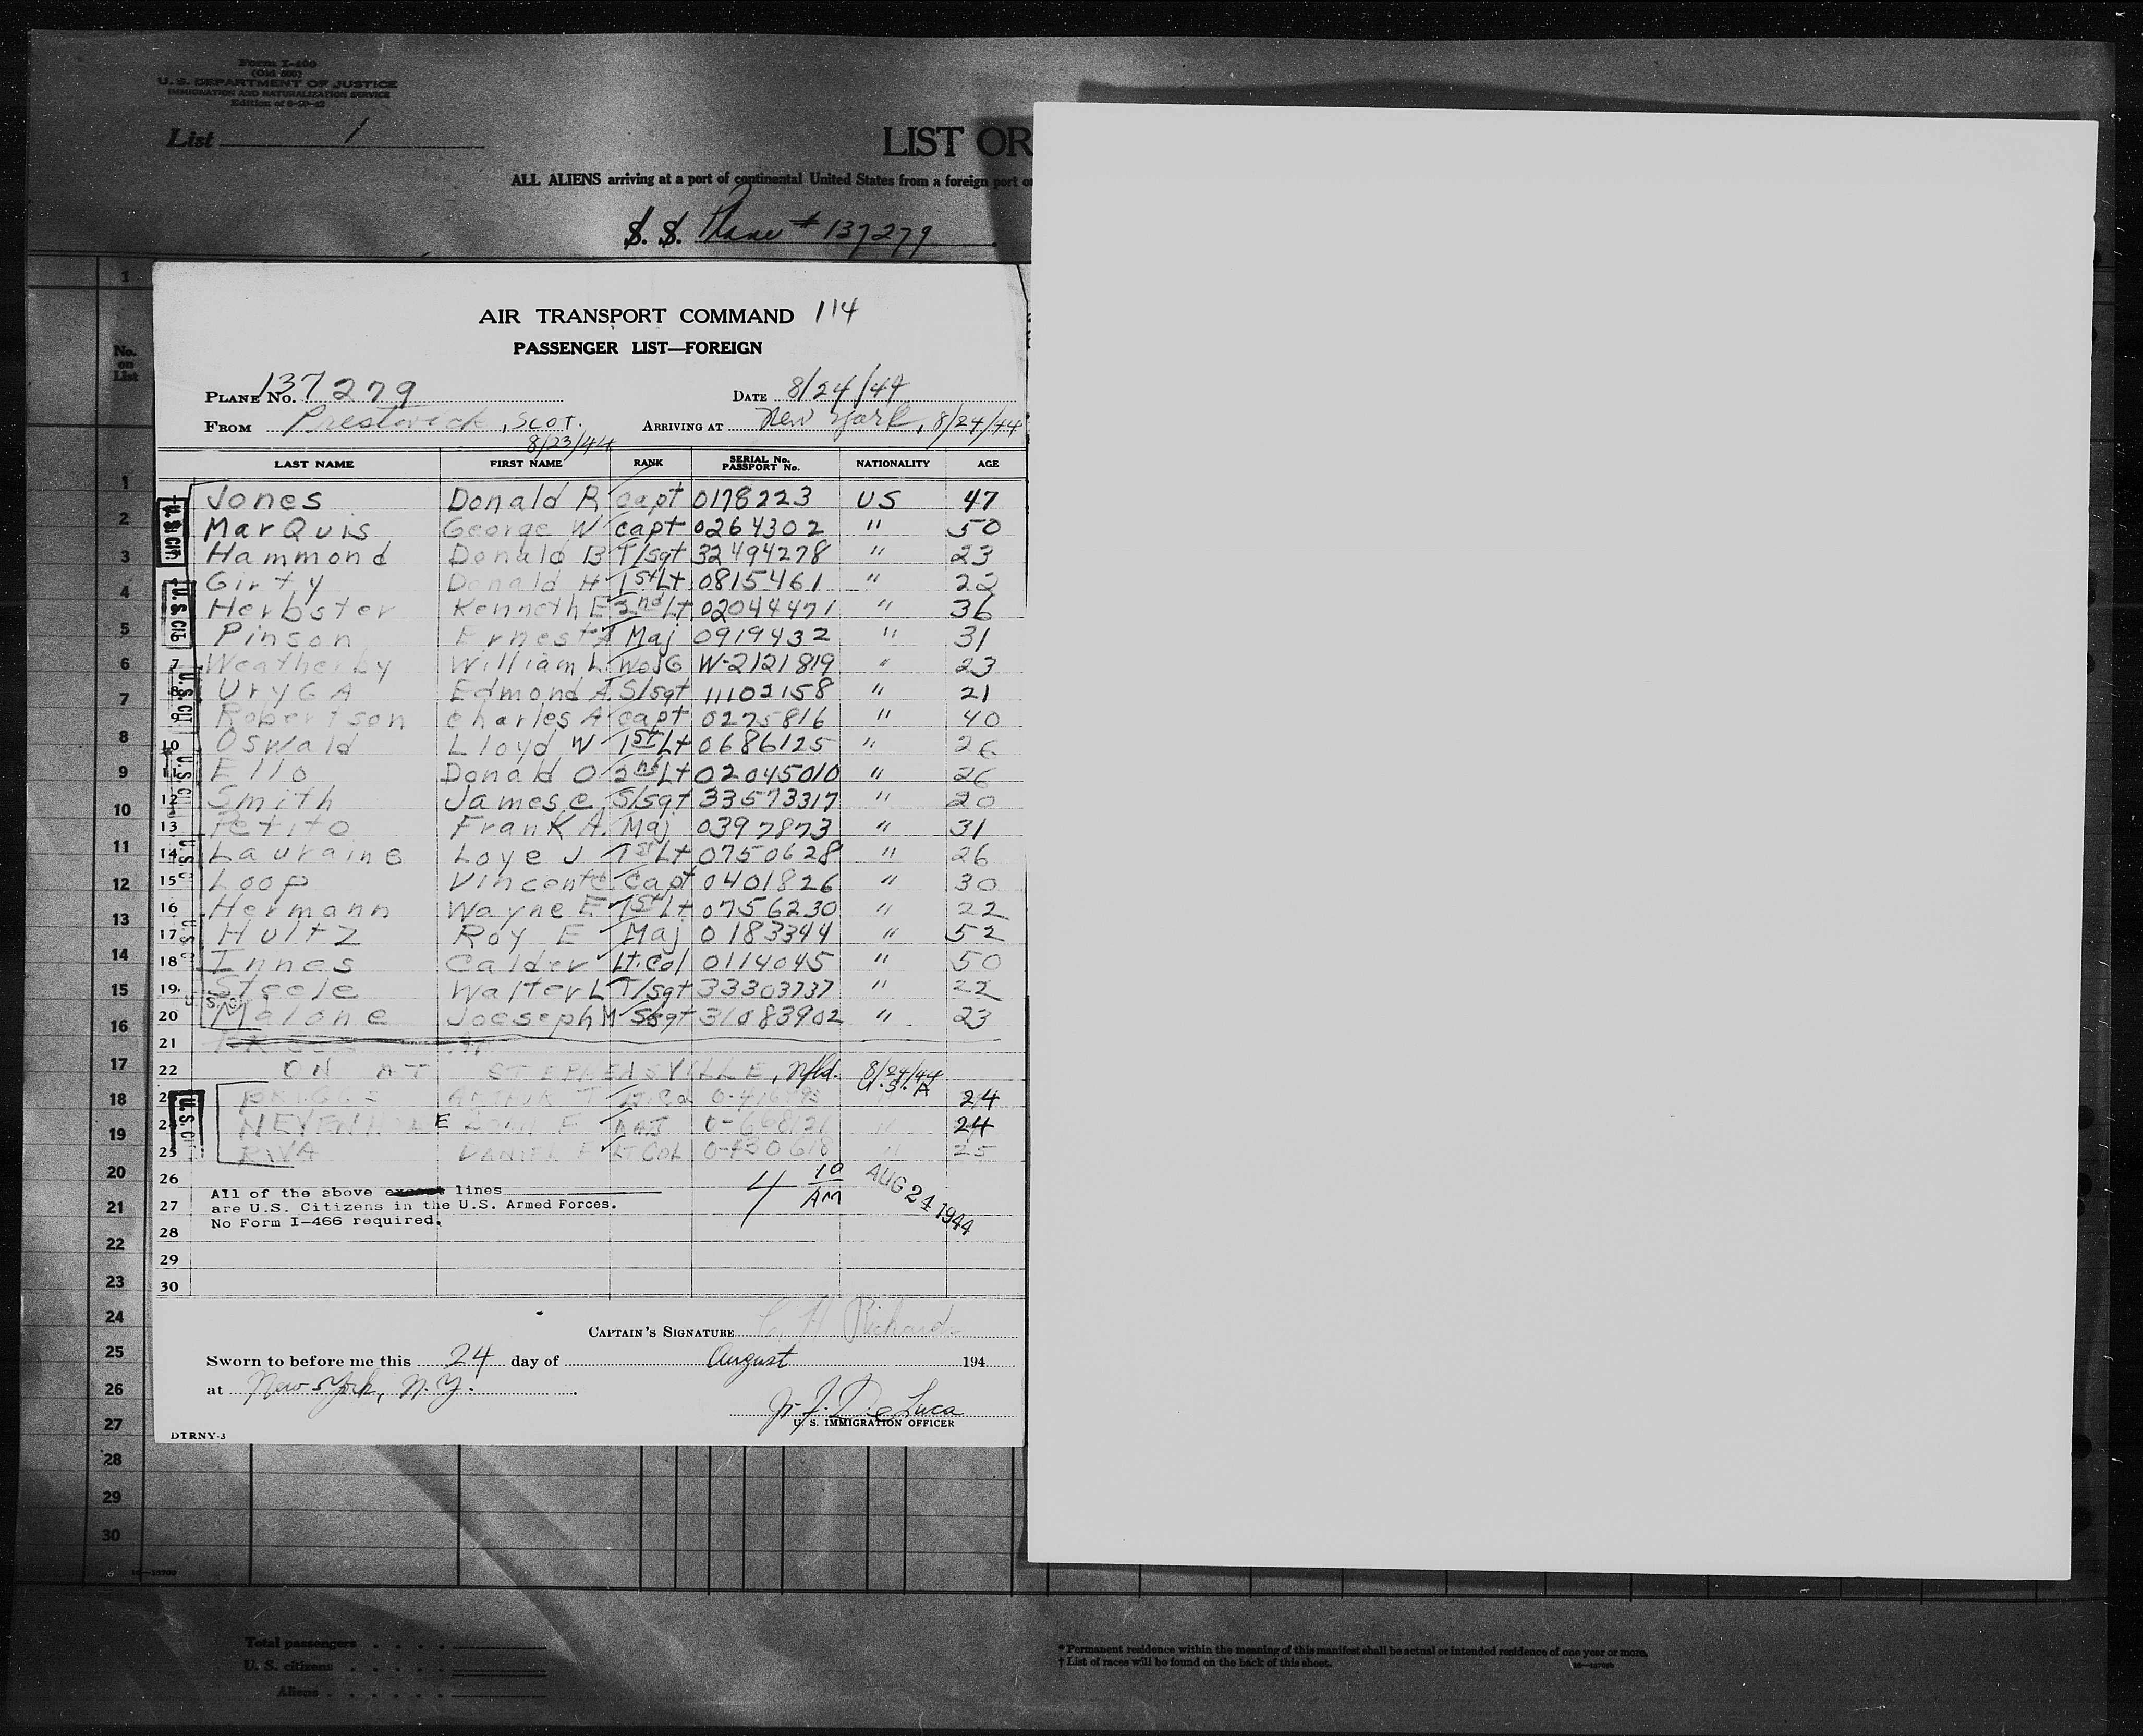 Form I-400
(Old 500)
U. S. DEPARTMENT OF JUSTICE
IMMIGRATION AND NATURALIZATION SERVICE
Edition of 6-20-42
List 1
LIST OR
ALL ALIENS arriving at a port of continental United States from a foreign port
S. S. Plane # 137279
No. on List
AIR TRANSPORT COMMAND 114
PASSENGER LIST—FOREIGN
PLANE NO. 137279 DATE 8/24/44
FROM Prestwick, SCOT. 8/23/44 ARRIVING AT New York, 8/24/44
LAST NAME FIRST NAME RANK SERIAL No. PASSPORT No. NATIONALITY AGE
Jones Donald R capt 0178223 US 47
MarQuis George W capt 0264302 " 50
Hammond Donald B T/sgt 32494278 " 23
Girty Donald H 1st Lt 0815461 " 22
Herbster Kenneth E 2nd Lt 02044471 " 36
Pinson Ernest Maj 0919432 " 31
7 Weatherby William L WOJG W-2121819 " 23
8 UryGA Edmond A. S/sgt 11102158 " 21
9 Robertson charles A capt 0275816 " 40
10 Oswald Lloyd W 1st Lt 0686125 " 26
11 Ello Donald O 2nd Lt 02045010 " 26
12 Smith James C. S/sgt 33573317 " 20
13 Petito Frank A. Maj 0397873 " 31
14 Lauraine Loye J 1st Lt 0750628 " 26
15 Loop Vincent C. Capt 0401826 " 30
16 Hermann Wayne E 1st Lt 0756230 " 22
17 Hultz Roy E Maj 0183344 " 52
18 Innes Calder Lt. Col 0114045 " 50
19 Steele Walter L T/sgt 33303737 " 22
20 Malone Joeseph M S/sgt 31083902 " 23
21
22 ON AT STEPHENSVILLE, Nfld. 8/24/44
U.S.A
23 ARTHUR T LT. Col 24
24 MAJ 24
25 RIVA DANIEL F LT. COL 0-430618 " 25
26 4 10 AM AUG 24 1944
All of the above except lines
27 are U.S. Citizens in the U.S. Armed Forces.
No Form I-466 required.
28
29
30
CAPTAIN'S SIGNATURE Richard
Sworn to before me this 24 day of August 194
at New York, N.Y.
De Luca
U. S. IMMIGRATION OFFICER
DTRNY-3
U. S. CIT.
U. S. CIT.
U. S. CIT.
1
2
3
4
5
6
7
8
9
10
11
12
13
14
15
16
17
18
19
20
21
22
23
24
25
26
27
28
29
30
Total passengers
U. S. citizens
Aliens
* Permanent residence within the meaning of this manifest shall be actual or intended residence of one year or more.
† List of races will be found on the back of this sheet.